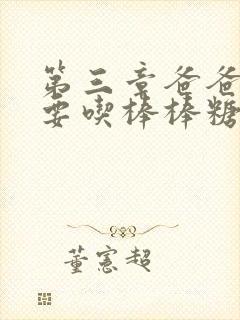 第三章爸爸
要喫棒棒糖
董憲超